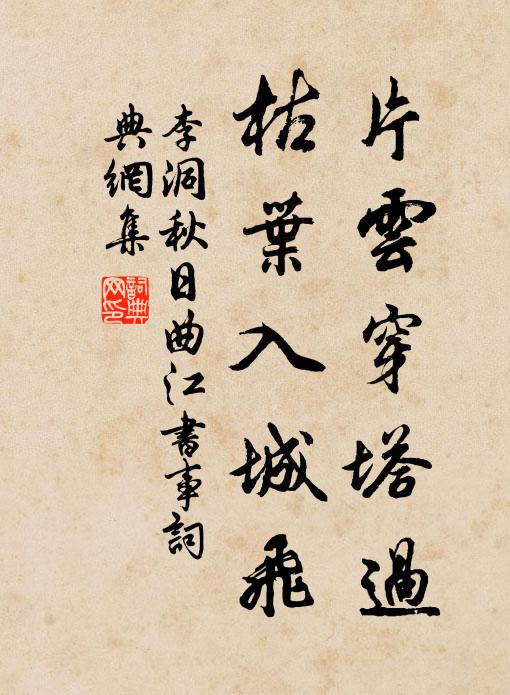 片雲穿塔過
枯葉入城飛
李洞秋日曲江書事詞
典網集
詞典
网印